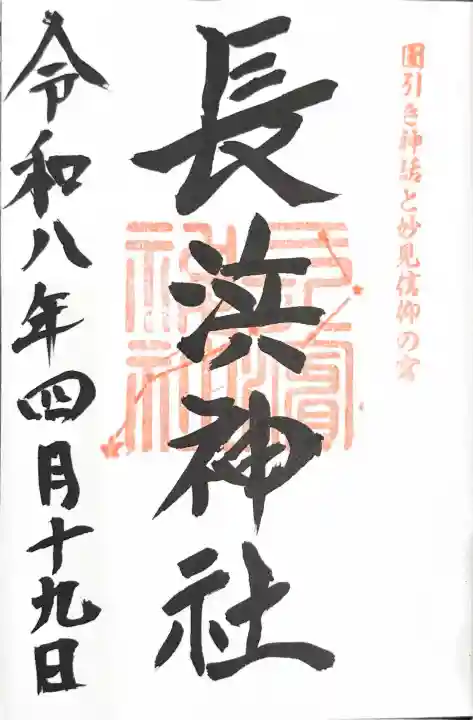 國引き神話と妙見信仰の宮
長浜神社
令和八年四月十九日